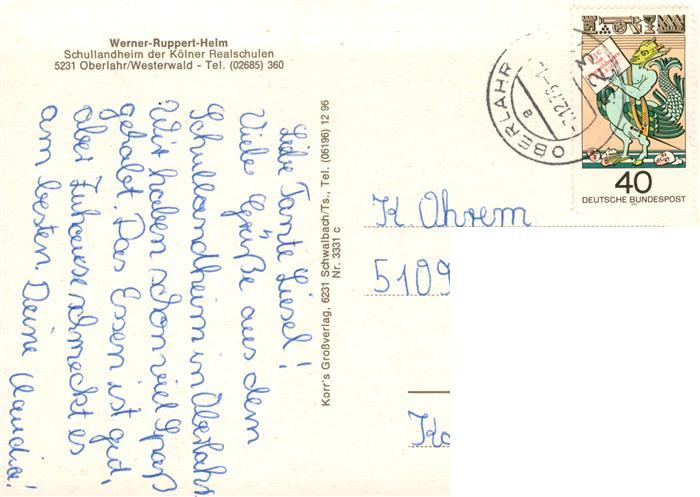 Werner-Ruppert-Helm
Schullandheim der Kölner Realschulen
5231 Oberlahr/Westerwald - Tel. (02685) 360
Liebe Tante Liesel!
Viele Grüße aus dem
Schullandheim in Oberlahr
Wir haben schon viel Spaß
gehabt. Das Essen ist gut,
aber Zuhause schmeckt es
am besten. Deine Claudia!
Korr's Großverlag, 6231 Schwalbach/Ts., Tel. (06196) 12 96
Nr. 3331 c
OBERLAHR
a
OBERLAHR
40
DEUTSCHE BUNDESPOST
K. Ohrem
5109
Ko